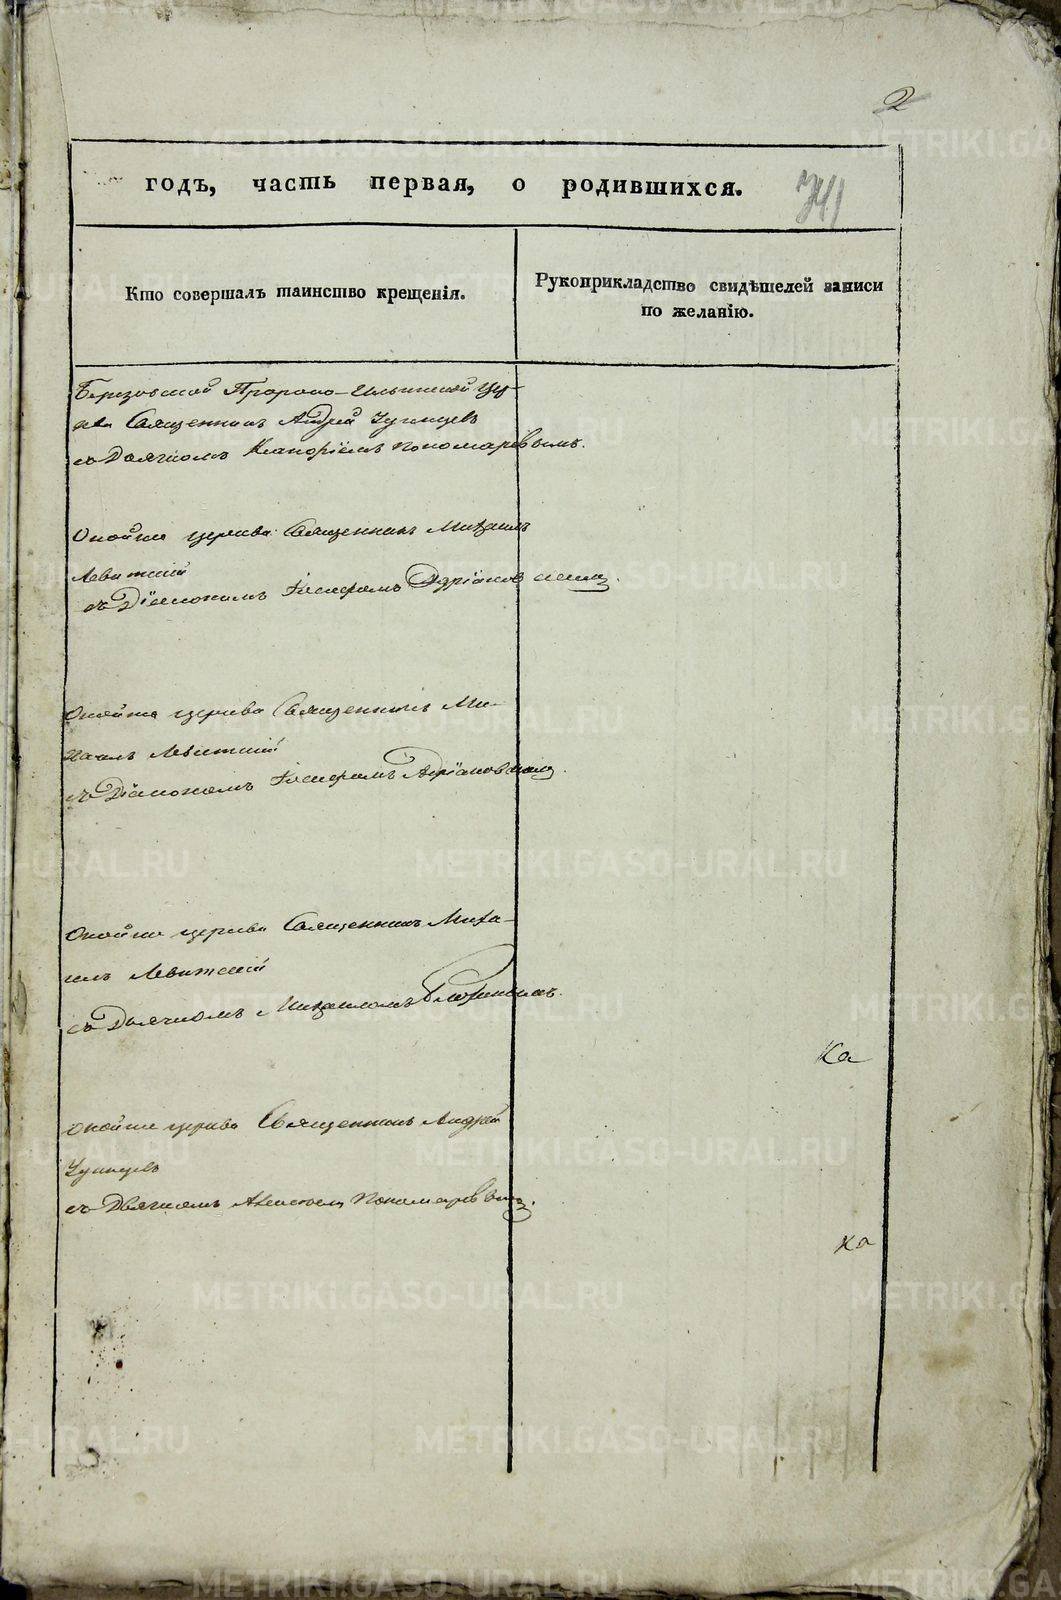 2
годъ, часть первая, о родившихся. 741
Кто совершалъ таинство крещенія.
Рукоприкладство свидѣтелей записи
по желанію.
Березовской Пророко-Ильинской Цер-
кви Священникъ Андрей
съ Дьячкомъ Пономаревымъ.
Онойже церкви Священникъ Михаилъ
Левитскій
съ Діакономъ Іосифомъ Адріановскимъ.
Онойже церкви Священникъ Ми-
хаилъ Левитскій
съ Діакономъ Іосифомъ Адріановскимъ.
Онойже церкви Священникъ Миха-
илъ Левитскій
съ Дьячкомъ Михаиломъ
Ка
Онойже церкви Священникъ Андрей
съ Дьячкомъ Пономаревымъ.
Ка
METRIKI.GASO-URAL.RU